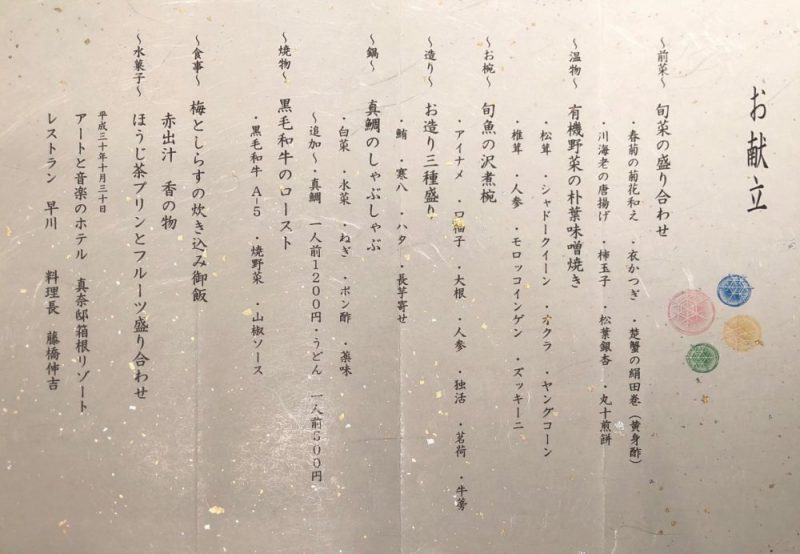 お献立
～前菜～ 旬菜の盛り合わせ
・春菊の菊花和え ・衣かつぎ ・楚蟹の絹田巻（黄身酢）
・川海老の唐揚げ ・柿玉子 ・松葉銀杏 ・丸十煎餅
～温物～ 有機野菜の朴葉味噌焼き
・松茸 ・シャドークイーン ・オクラ ・ヤングコーン
・椎茸 ・人参 ・モロッコインゲン ・ズッキーニ
～お椀～ 旬魚の沢煮椀
・アイナメ ・口柚子 ・大根 ・人参 ・独活 ・茗荷 ・牛蒡
～造り～ お造り三種盛り
・鮪 ・寒八 ・ハタ ・長芋寄せ
～鍋～ 真鯛のしゃぶしゃぶ
・白菜 ・水菜 ・ねぎ ・ポン酢 ・薬味
～追加～・真鯛 一人前1200円・うどん 一人前600円
～焼物～ 黒毛和牛のロースト
・黒毛和牛 A-5 ・焼野菜 ・山椒ソース
～食事～ 梅としらすの炊き込み御飯
赤出汁 香の物
～水菓子～ ほうじ茶プリンとフルーツ盛り合わせ
平成三十年十月三十日
アートと音楽のホテル 真奈邸箱根リゾート
レストラン 早川 料理長 藤橋伸吉